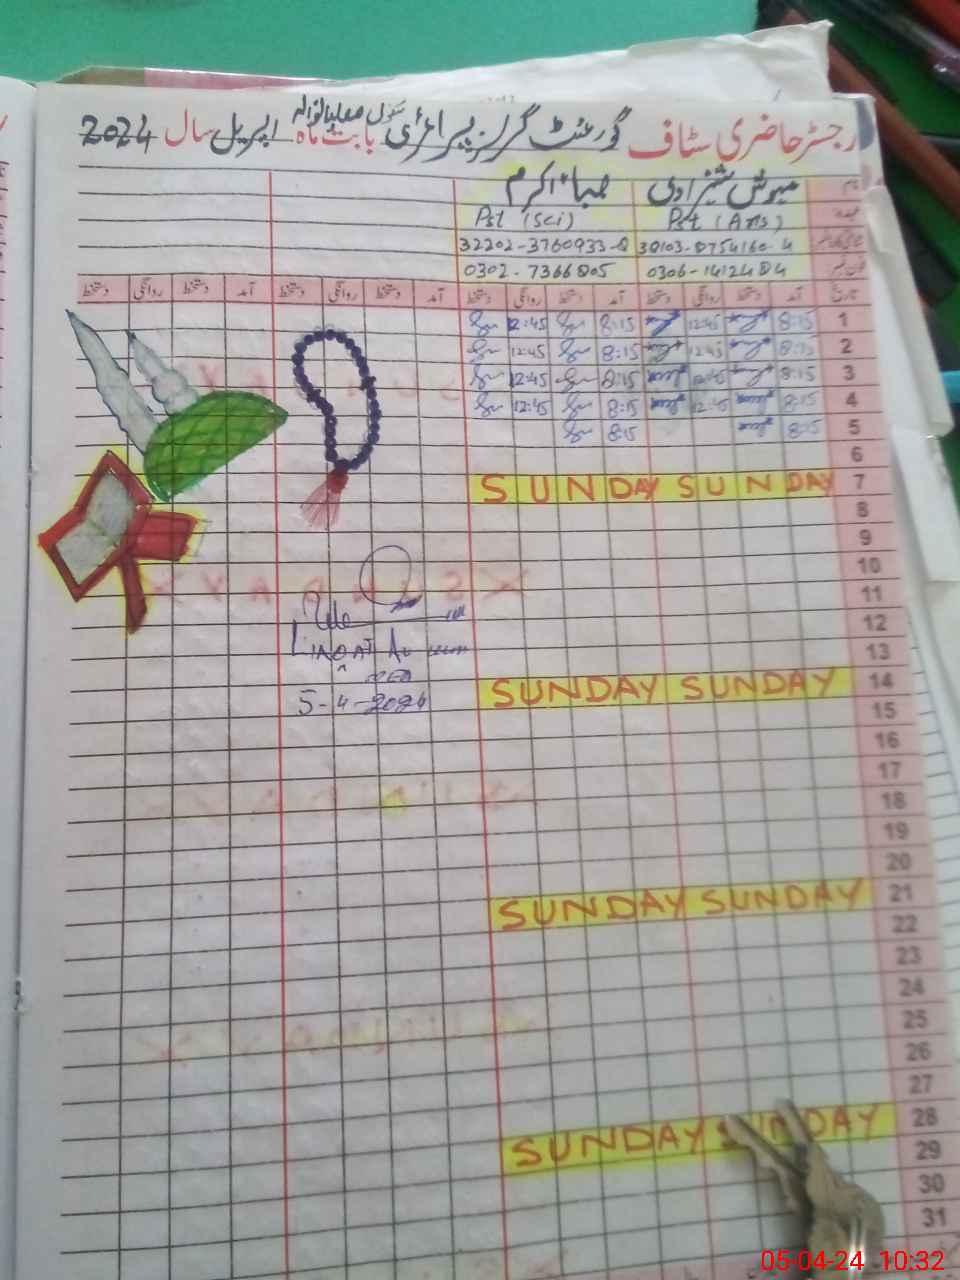 رجسٹر حاضری سٹاف گورنمنٹ گرلز پرائمری سکول بابت ماہ اپریل سال 2024
نام مہوش شہزادی صبا اکرم
عہدہ Pst (Arts) Pst (Sci)
32202-3760933-8
0302-7366805 0306-1412484
تاریخ آمد دستخط روانگی دستخط آمد دستخط روانگی دستخط آمد دستخط روانگی دستخط آمد دستخط روانگی دستخط
1 8:15 12:45 8:15 12:45
2 8:15 12:45 8:15 12:45
3 8:15 12:45 8:15 12:45
4 8:15 12:45 8:15 12:45
5 8:15 8:15
6
7 SUNDAY SUNDAY
8
9
10
11
12
13
14 SUNDAY SUNDAY
15
5-4-2024
16
17
18
19
20
21 SUNDAY SUNDAY
22
23
24
25
26
27
28 SUNDAY SUNDAY
29
30
31
05-04-24 10:32